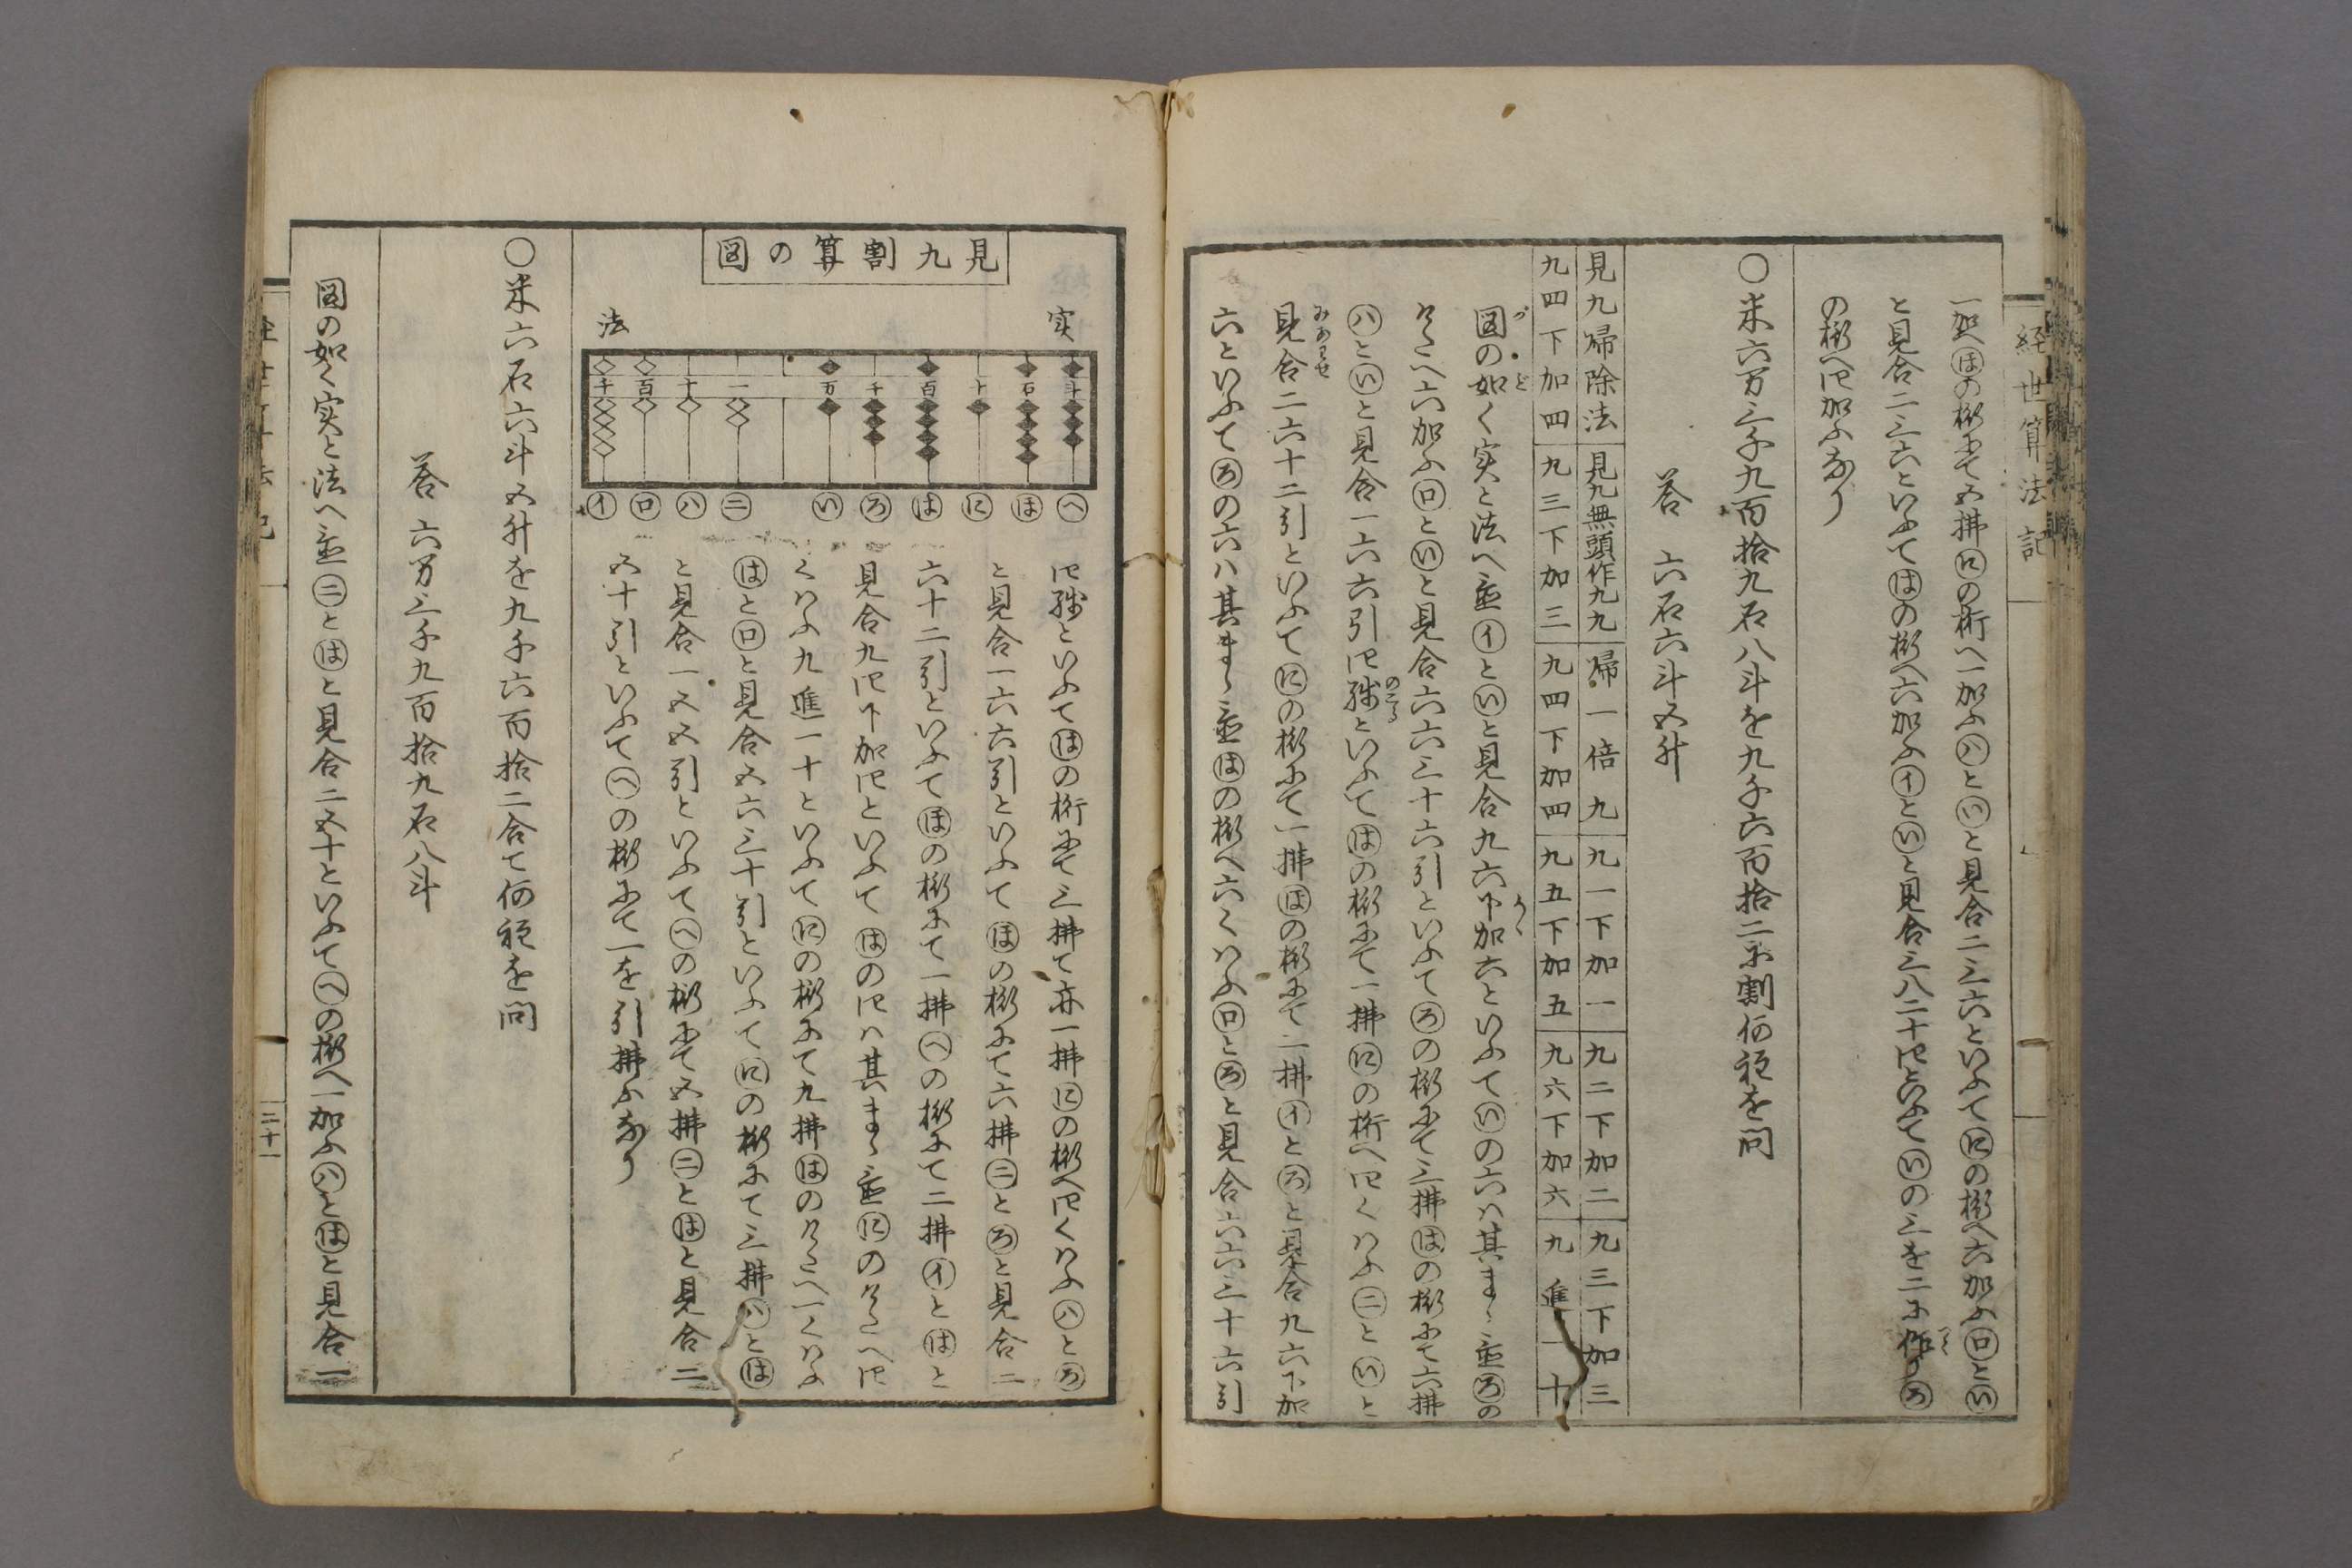 経世算法記
一加へ㋭の桁にて五拂㋥の桁へ一加ふ㋩と㋑と見合二三六といふて㋥の桁へ六加ふ㋺と㋑
と見合二三六といふて㋩の桁へ六加ふ㋑と㋑と見合三八二十四といふて㋑の三を二に作りろ
の桁へ四加ふなり
○米六万三千九百拾九石八斗を九千六百拾二に割何程を問
答 六石六斗五升
見九帰除法 見九無頭作九九 帰一倍九 九一下加一 九二下加二 九三下加三
九四下加四 九三下加三 九四下加四 九五下加五 九六下加六 九進一十
図の如く実と法へ置イといと見合九六下加六といふていの六ハ其まゝ置ろの
けたへ六加ふロといと見合六六三十六引といふてろの桁にて三拂はの桁にて六拂
ハといと見合一六六引四残といふてはの桁にて一拂にの桁へ四くハふニといと
見合二六十二引といふてにの桁にて一拂ほの桁にて二拂イとろと見合九六下加
六といふてろの六ハ其まゝ置はの桁へ六くハふロとろと見合六六三十六引
見九割算の図
実
法
千 百 十 一 万 千 百 十 石 斗
イ ロ ハ ニ い ろ は に ほ へ
四残といふてはの桁にて三拂て亦一拂にの桁へ四くハふハとろ
と見合一六六引といふてほの桁にて六拂ニとろと見合二
六十二引といふてほの桁にて一拂への桁にて二拂イとはと
見合九四下加四といふてはの四ハ其まゝ置にのけたへ四
くハふ九進一十といふてにの桁にて九拂はのけたへ一くハふ
はとロと見合五六三十引といふてにの桁にて三拂ハとは
と見合一五五引といふてへの桁にて五拂ニとはと見合二
五十引といふてへの桁にて一を引拂ふなり
○米六石六斗五升を九千六百拾二合て何程を問
答 六万三千九百拾九石八斗
図の如く実と法へ置ニとはと見合二五十といふてへの桁へ一加ふハとはと見合一
二十一